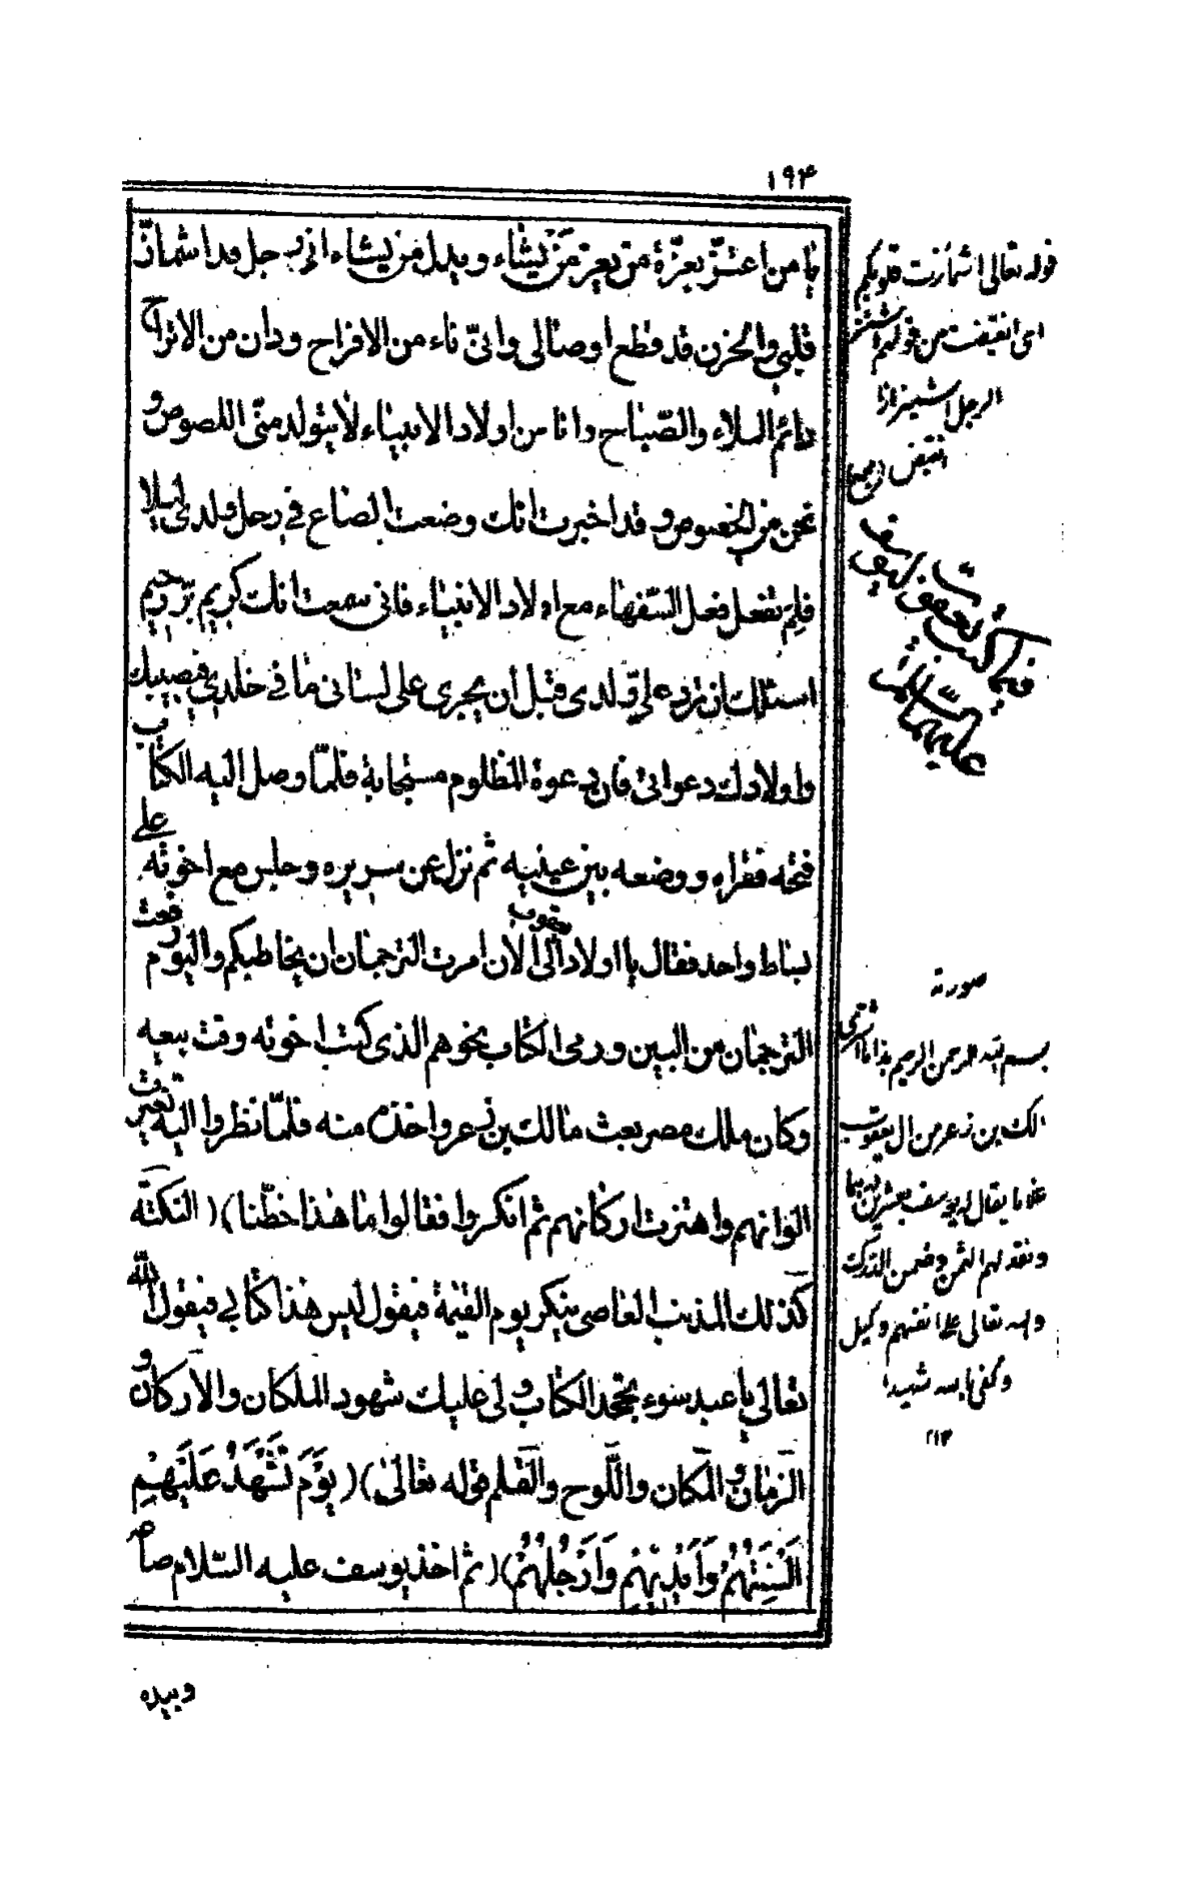 ١٩٤
يا من اعتزّ بعزّة من يعز من يشاء ويذل من يشاء انى رجل قد اشمأزّ
قلبى والحزن قد قطع اوصالى وانّى ناء من الافراح ودان من الاتراح
دائم البلاء والصّباح وانا من اولاد الانبياء لا يتولد منّى اللصوص و
نحن من الخصوص وقد اخبرت انك وضعت الصاع فى رحل ولدى ليلا
فلم تفعل فعل السّفهاء مع اولاد الانبياء فانى سمعت انك كريم برّ رحيم
اسئلك ان ترد علىّ ولدى قبل ان يجرى على لسانى ما فى خلدى فيصيبك
واولادك دعوائى فان دعوة المظلوم مستجابة فلمّا وصل اليه الكتاب
فتحه فقراه ووضعه بين عينيه ثم نزل عن سريره وجلس مع اخوته على
بساط واحد فقال يا اولاد يعقوب الى الان امرت الترجمان ان يخاطبكم واليوم رفعت
الترجمان من البين ورمى الكتاب نحوهم الذى كتب اخوته وقت بيعه
وكان ملك مصر بعث مالك بن زعر واخذه منه فلمّا نظروا اليه تغيرت
الوانهم واهتزت اركانهم ثم انكروا فقالوا ما هذا خطّنا) (النكتة
كذلك المذنب العاصى ينكر يوم القيمة فيقول ليس هذا كتابى فيقول الله
تعالى يا عبد سوء تجحد الكتاب ولى عليك شهود الملكان والاركان و
الزمان والمكان واللّوح والقلم قوله تعالى) (يَوْمَ تَشْهَدُ عَلَيْهِمْ
اَلْسِنَتُهُمْ وَاَيْدِيهِمْ وَاَرْجُلُهُمْ) (ثم اخذ يوسف عليه السّلام صاعه
وبيده
قوله تعالى اشمأزت قلوبكم
اى انقبضت من قولهم
الرجل اشميزازا
انقبض
فيما كتب يعقوب ليوسف
عليهما السّلام
صورة
بسم الله الرحمن الرحيم هذا ما اشترى
مالك بن زعر من ال يعقوب
غلاما يقال له يوسف بعشرين درهما
ونقد لهم الثمن وضمن الدرك
والله تعالى على انفسهم وكيل
وكفى بالله شهيدا